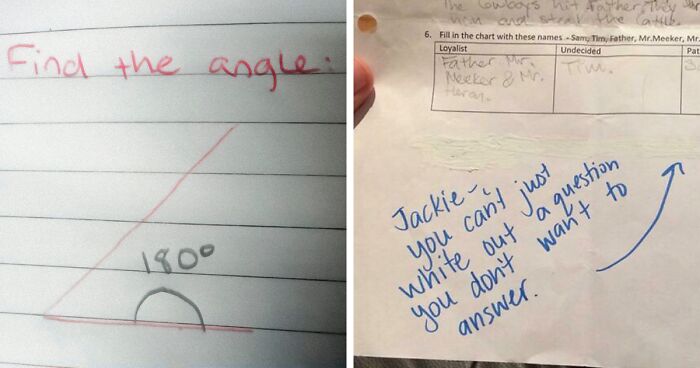 Find the angle:
180°
The Cowboys hit Father, They
him and steal the Cattle.
6. Fill in the chart with these names - Sam, Tim, Father, Mr.Meeker, Mr.
Loyalist Undecided Pat
Father Mr. Tim.
Meeker & Mr.
Heron.
Jackie -
you can't just
white out a question
you don't want to
answer.